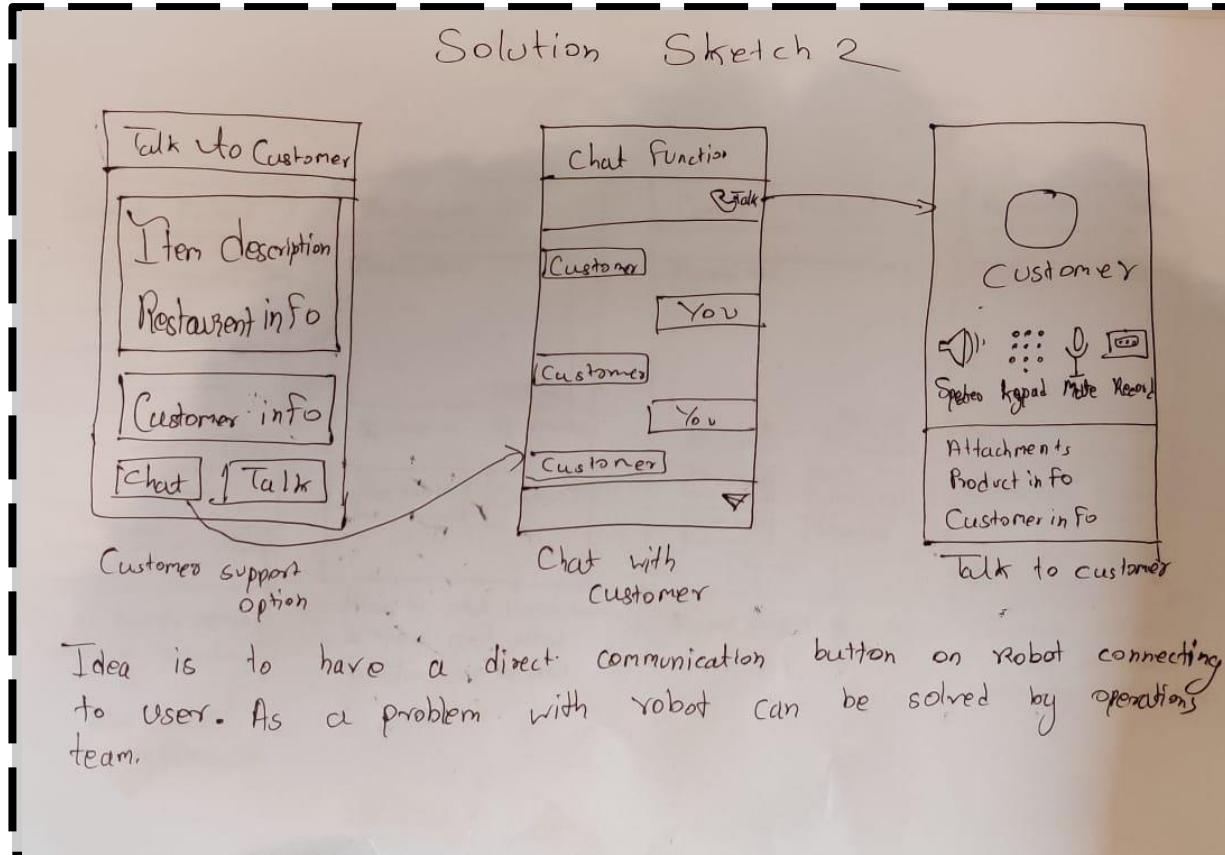 Solution Sketch 2
Talk to Customer
Item description
Restaurent info
Customer info
Chat
Talk
Customer support
option
Chat Function
Talk
Customer
You
Customer
You
Customer
Chat with
Customer
Customer
Mute
Record
Attachments
Product info
Customer info
Talk to customer
Idea is to have a direct communication button on Robot connecting
to user. As a problem with robot can be solved by operations
team.